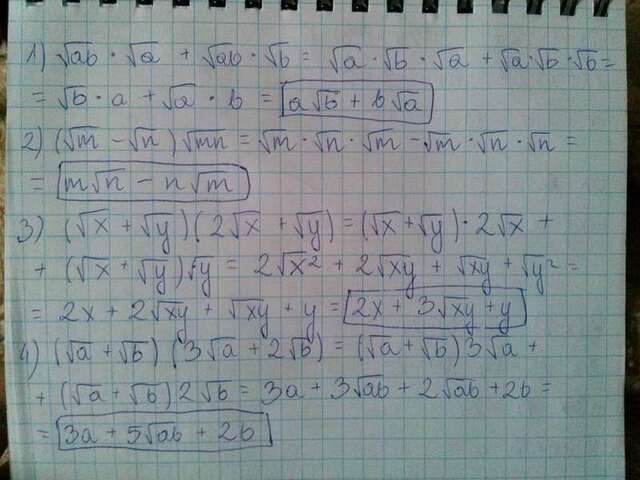 1) √ab · √a + √ab · √b = √a · √b · √a + √a · √b · √b =
= √b · a + √a · b = a√b + b√a
2) (√m - √n) √mn = √m · √n · √m - √m · √n · √n =
= m√n - n√m
3) (√x + √y)(2√x + √y) = (√x + √y) · 2√x +
+ (√x + √y)√y = 2√x² + 2√xy + √xy + √y² =
= 2x + 2√xy + √xy + y = 2x + 3√xy + y
4) (√a + √b) (3√a + 2√b) = (√a + √b) 3√a +
+ (√a + √b) 2√b = 3a + 3√ab + 2√ab + 2b =
= 3a + 5√ab + 2b